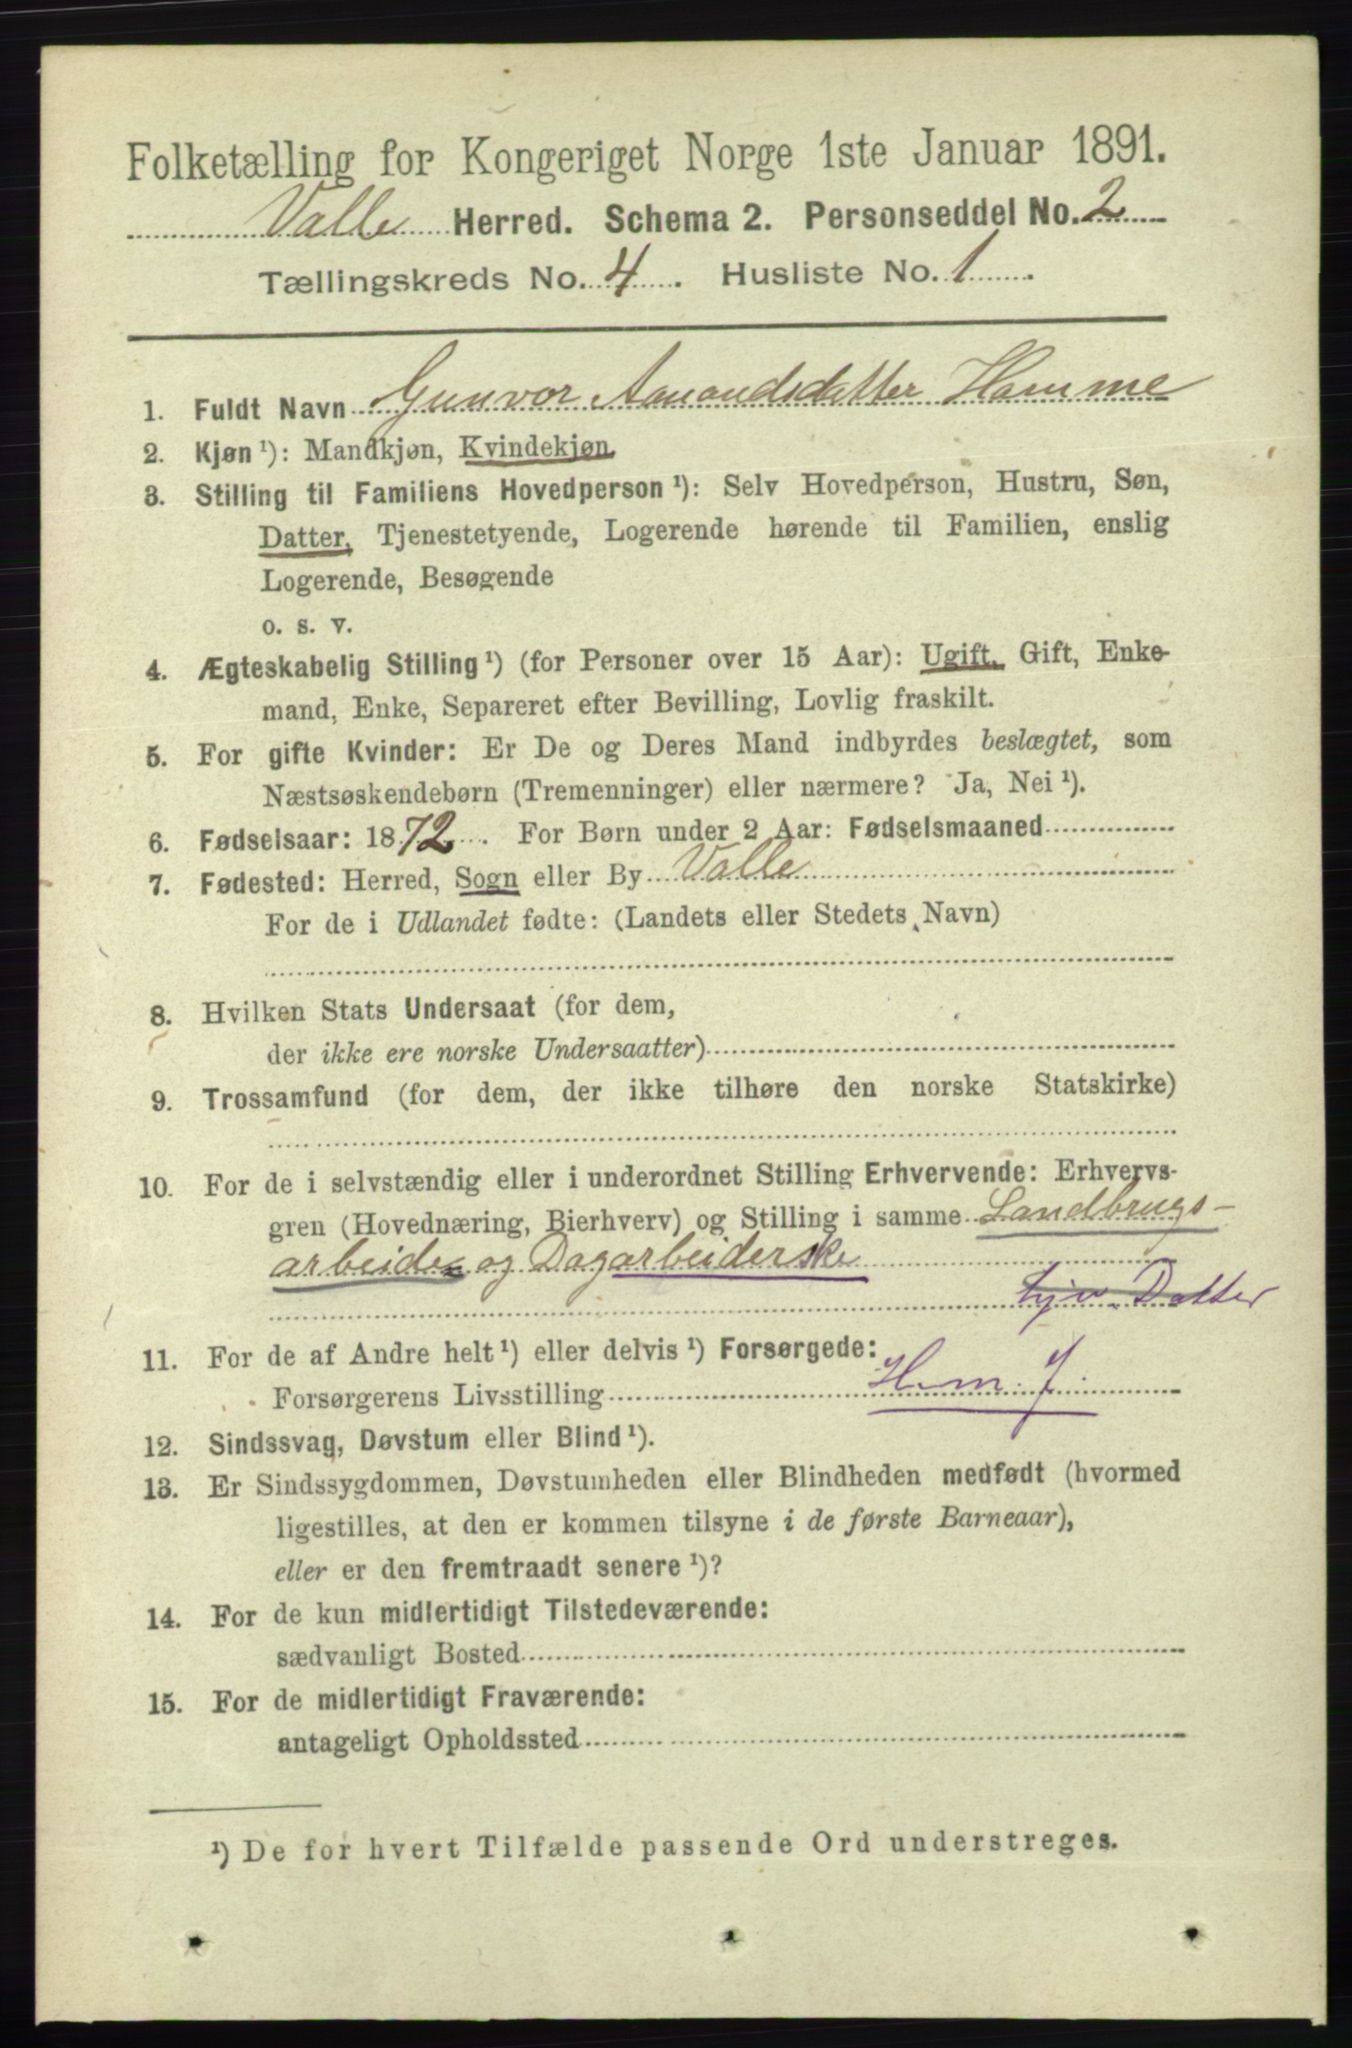 Folketælling for Kongeriget Norge 1ste Januar 1891.
Valle Herred. Schema 2. Personseddel No. 2
Tællingskreds No. 4. Husliste No. 1
1. Fuldt Navn Gunvor Aanondsdatter Homme
2. Kjøn ¹): Mandkjøn, Kvindekjøn.
3. Stilling til Familiens Hovedperson ¹): Selv Hovedperson, Hustru, Søn,
Datter, Tjenestetyende, Logerende hørende til Familien, enslig
Logerende, Besøgende
o. s. v.
4. Ægteskabelig Stilling ¹) (for Personer over 15 Aar): Ugift, Gift, Enke-
mand, Enke, Separeret efter Bevilling, Lovlig fraskilt.
5. For gifte Kvinder: Er De og Deres Mand indbyrdes beslægtet, som
Næstsøskendebørn (Tremenninger) eller nærmere? Ja, Nei ¹).
6. Fødselsaar: 1872. For Børn under 2 Aar: Fødselsmaaned
7. Fødested: Herred, Sogn eller By Valle
For de i Udlandet fødte: (Landets eller Stedets Navn)
8. Hvilken Stats Undersaat (for dem,
der ikke ere norske Undersaatter)
9. Trossamfund (for dem, der ikke tilhøre den norske Statskirke)
10. For de i selvstændig eller i underordnet Stilling Erhvervende: Erhvervs-
gren (Hovednæring, Bierhverv) og Stilling i samme Landbrugs-
arbeide og Dagarbeiderske
tjv. Datter
11. For de af Andre helt ¹) eller delvis ¹) Forsørgede:
Forsørgerens Livsstilling H. m. J.
12. Sindssvag, Døvstum eller Blind ¹).
13. Er Sindssygdommen, Døvstumheden eller Blindheden medfødt (hvormed
ligestilles, at den er kommen tilsyne i de første Barneaar),
eller er den fremtraadt senere ¹)?
14. For de kun midlertidigt Tilstedeværende:
sædvanligt Bosted
15. For de midlertidigt Fraværende:
antageligt Opholdssted
¹) De for hvert Tilfælde passende Ord understreges.